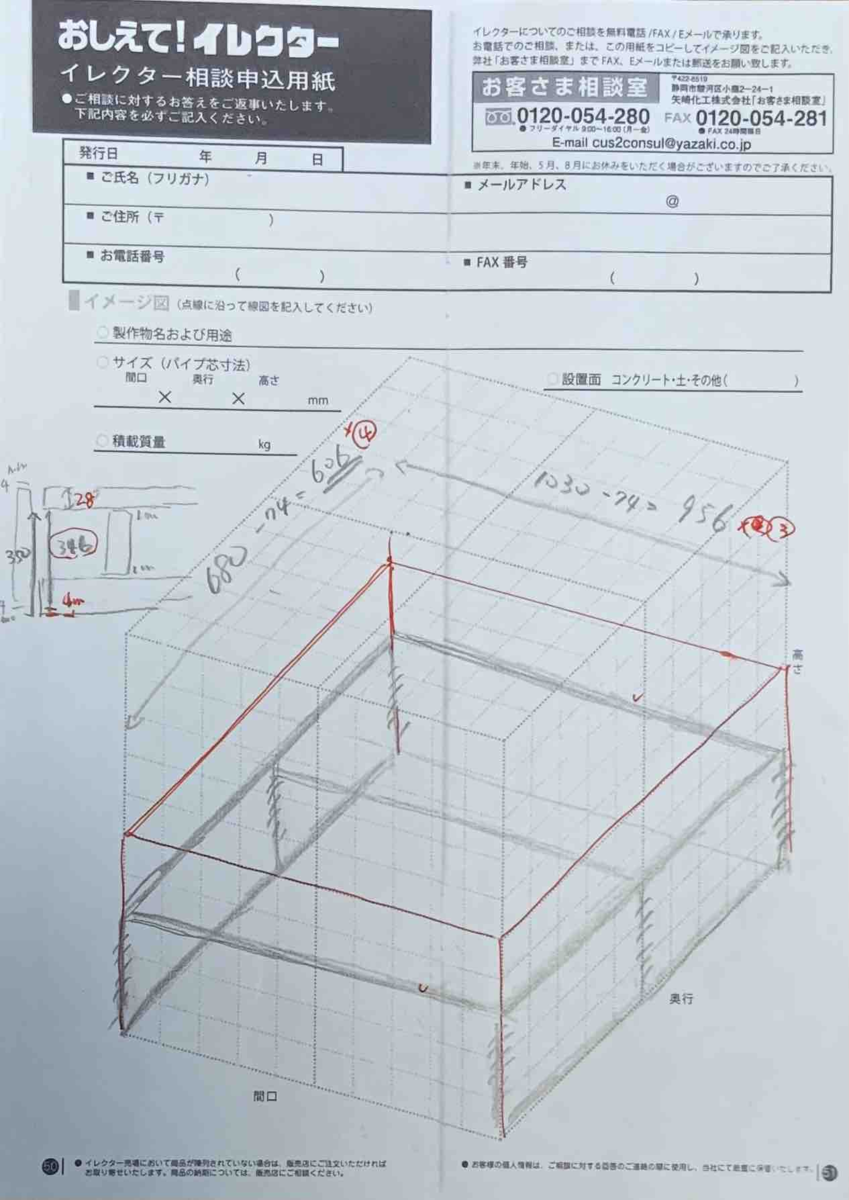 おしえて!イレクター
イレクター相談申込用紙
●ご相談に対するお答えをご返事いたします。
下記内容を必ずご記入ください。
イレクターについてのご相談を無料電話/FAX/Eメールで承ります。
お電話でのご相談、または、この用紙をコピーしてイメージ図をご記入いただき、
弊社「お客さま相談室」までFAX、Eメールまたは郵送をお願い致します。
お客さま相談室
〒422-8519
静岡市駿河区小鹿2-24-1
矢崎化工株式会社「お客さま相談室」
0120-054-280 FAX 0120-054-281
●フリーダイヤル 9:00~16:00(月~金) ●FAX 24時間無日
E-mail cus2consul@yazaki.co.jp
※年末、年始、5月、8月にお休みをいただく場合がございますのでご了承ください。
発行日 年 月 日
■ ご氏名(フリガナ)
■ メールアドレス
@
■ ご住所(〒 )
■ お電話番号
( )
■ FAX番号
( )
イメージ図(点線に沿って線図を記入してください)
製作物名および用途
サイズ(パイプ芯寸法)
間口 奥行 高さ
× × mm
設置面 コンクリート・土・その他( )
積載質量 kg
680-74=606
④
1030-74=956
③
28
350
346
高さ
奥行
間口
50
● イレクター売場において商品が陳列されていない場合は、販売店にご注文いただければ
お取り寄せいたします。商品の納期については、販売店にご相談ください。
● お客様の個人情報は、ご相談に対する回答のご連絡の際に使用し、当社にて厳重に保管いたします。
51